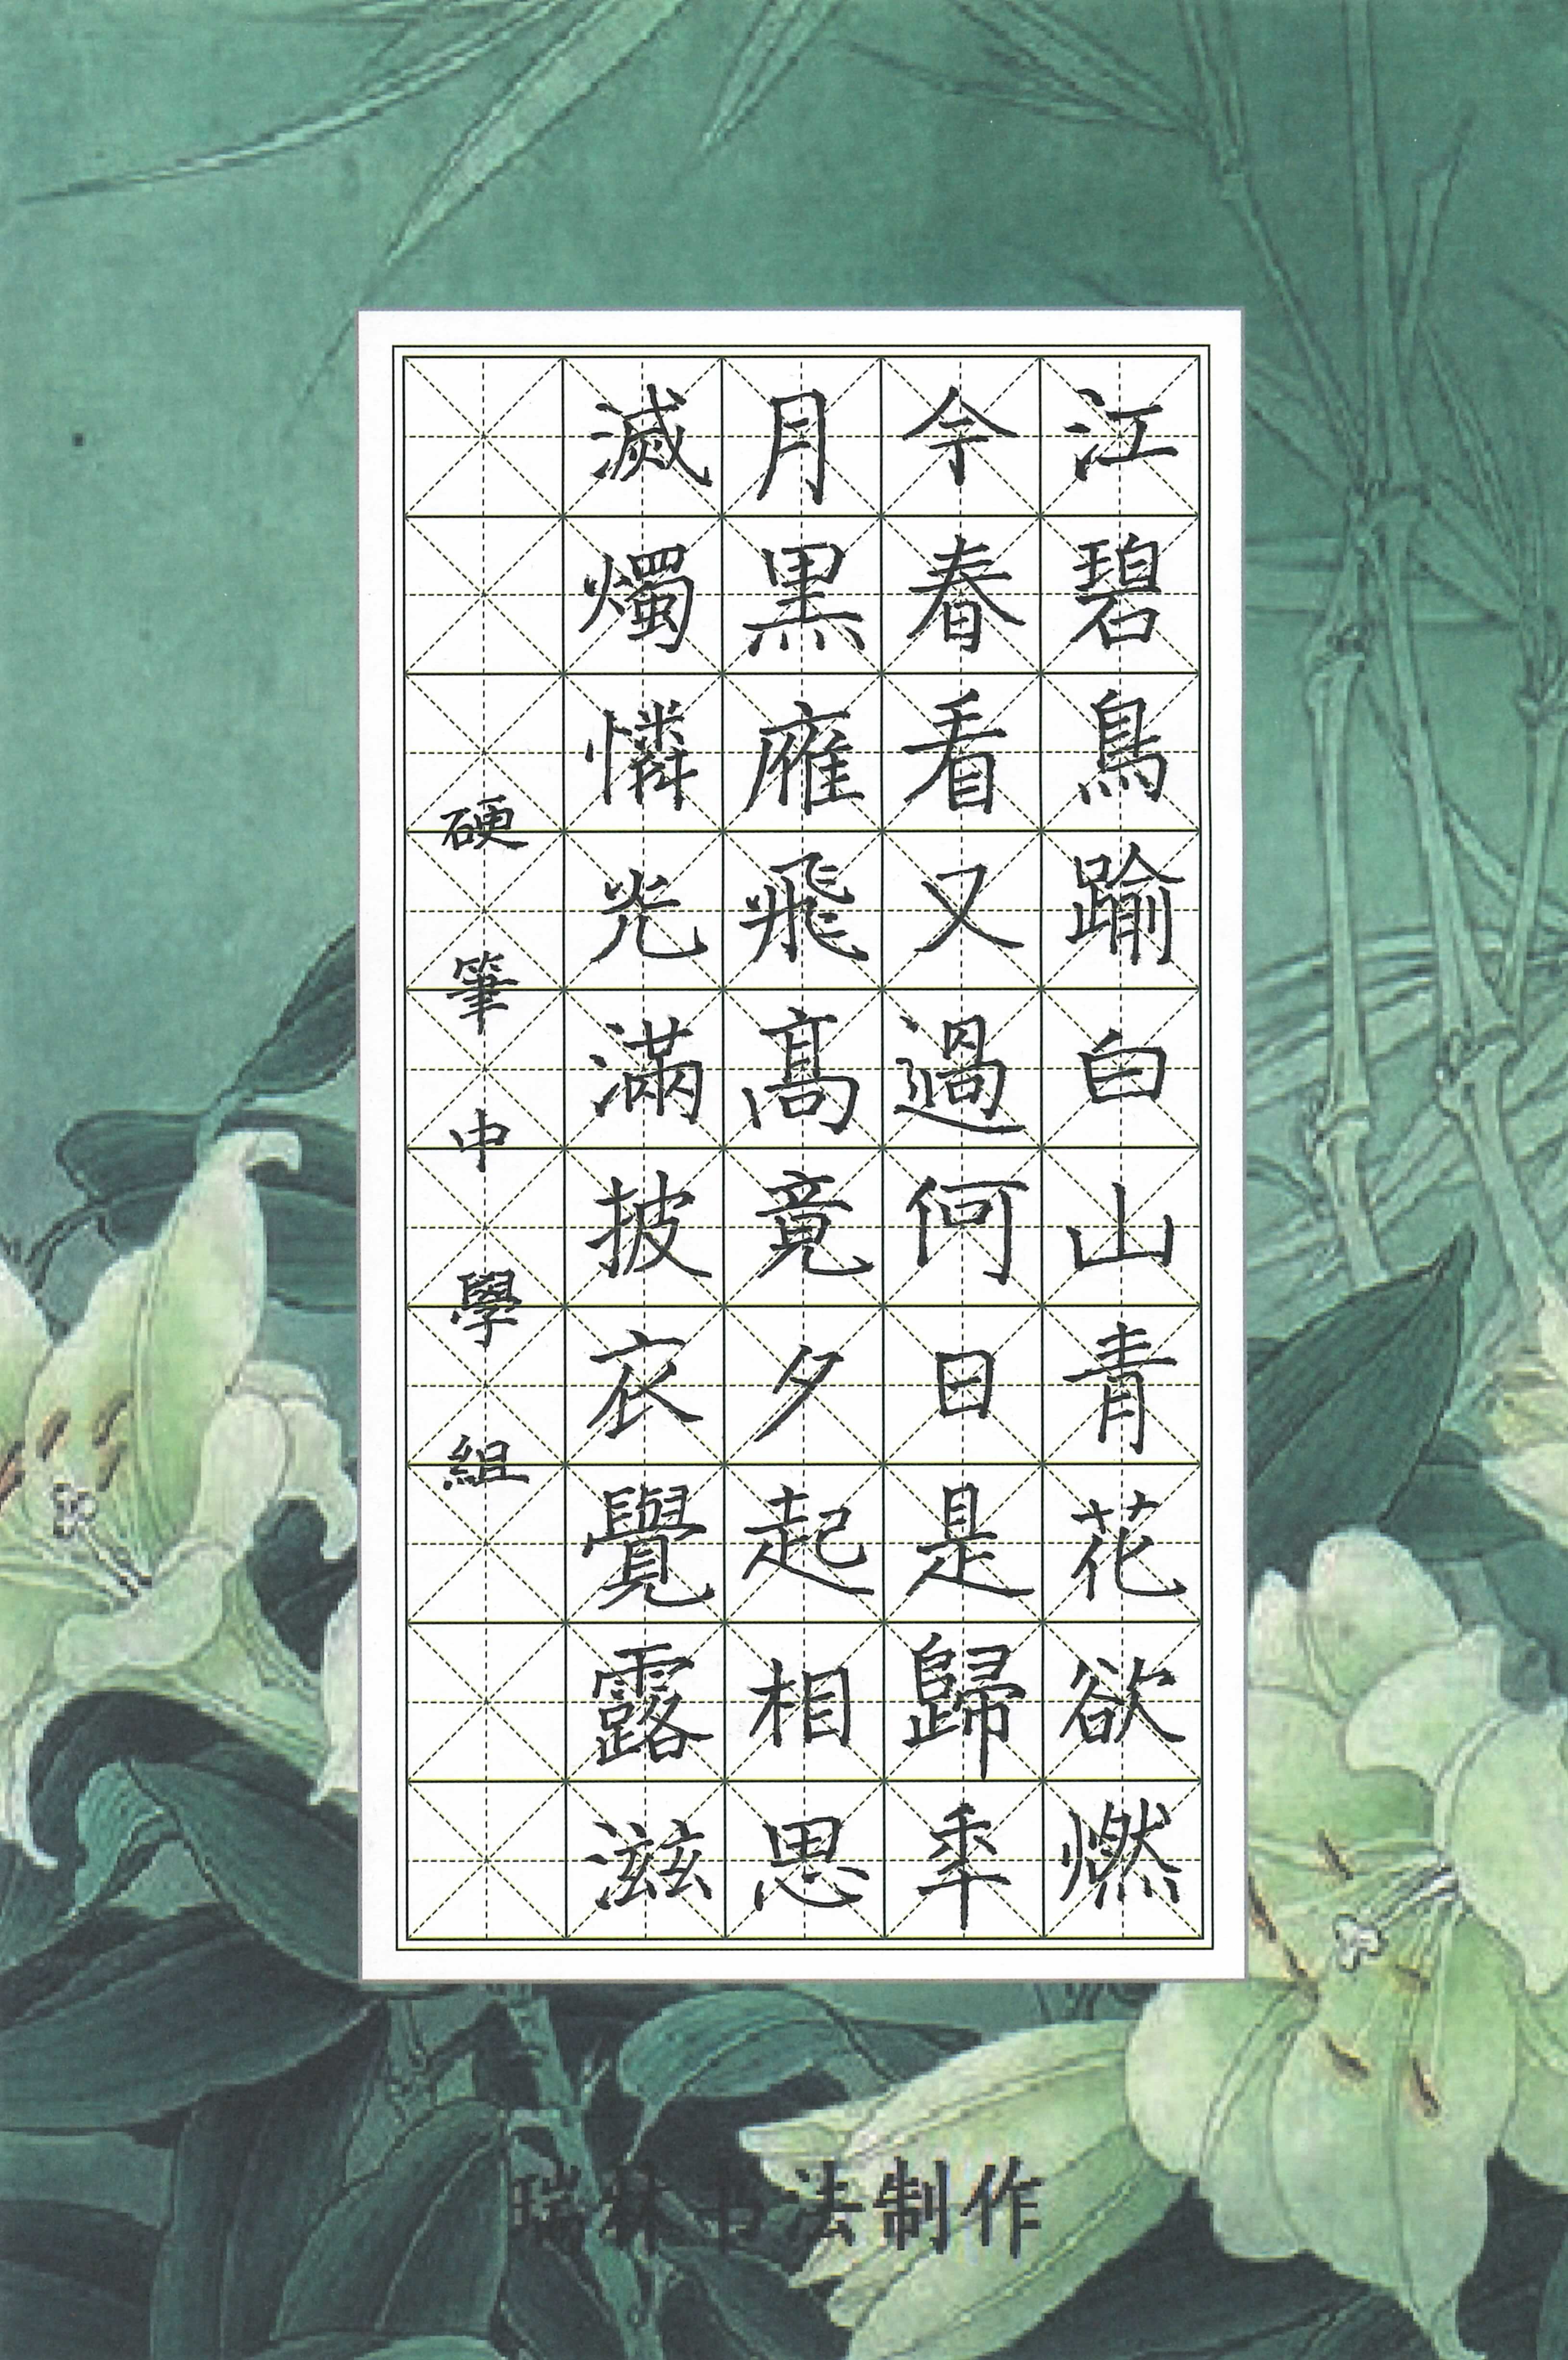 江碧鳥踰白山青花欲燃
今春看又過何日是歸年
月黒雁飛髙竟夕起相思
滅燭憐光滿披衣覺露滋
硬筆中學組
瑞林书法制作